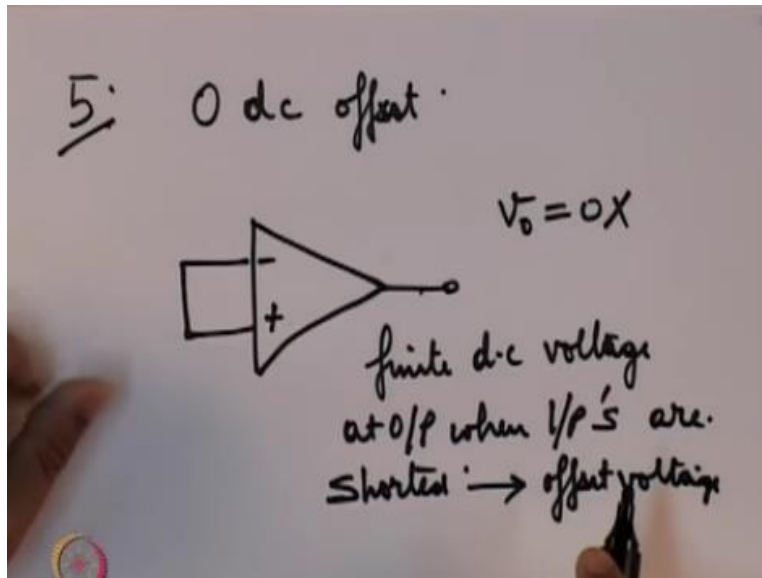 5. 0 dc offset.
V₀ = 0 X
-
+
finite d.c voltage
at O/P when I/P's are.
Shorted. → offset voltage